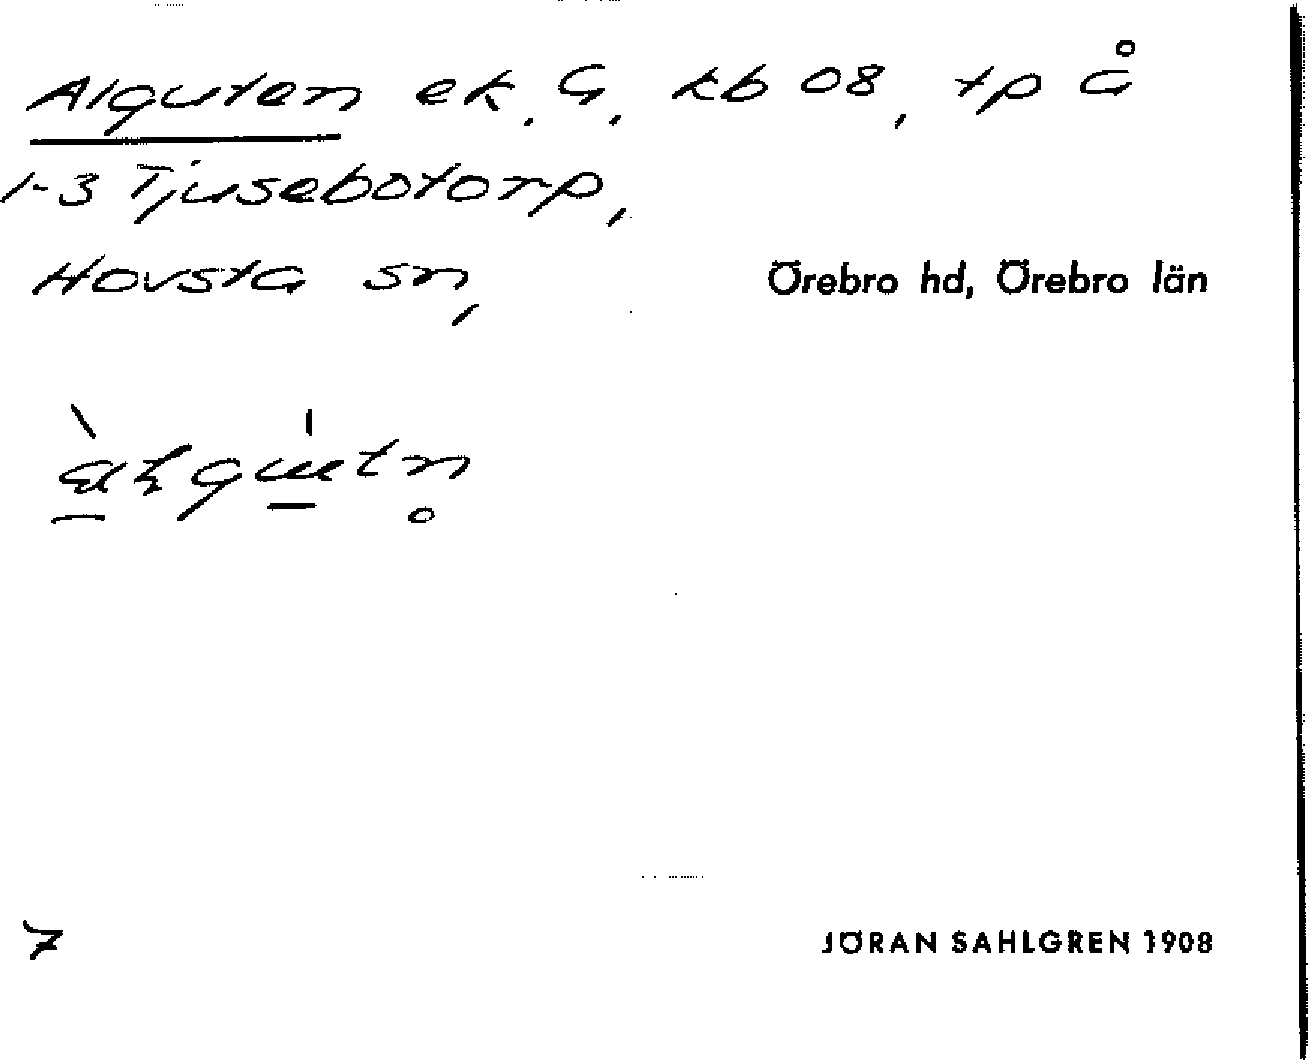 Alguten ek. G. kb 08, tp å
1-3 Tjusebotorp,
Hovsta sn, Örebro hd, Örebro län
7
JÖRAN SAHLGREN 1908